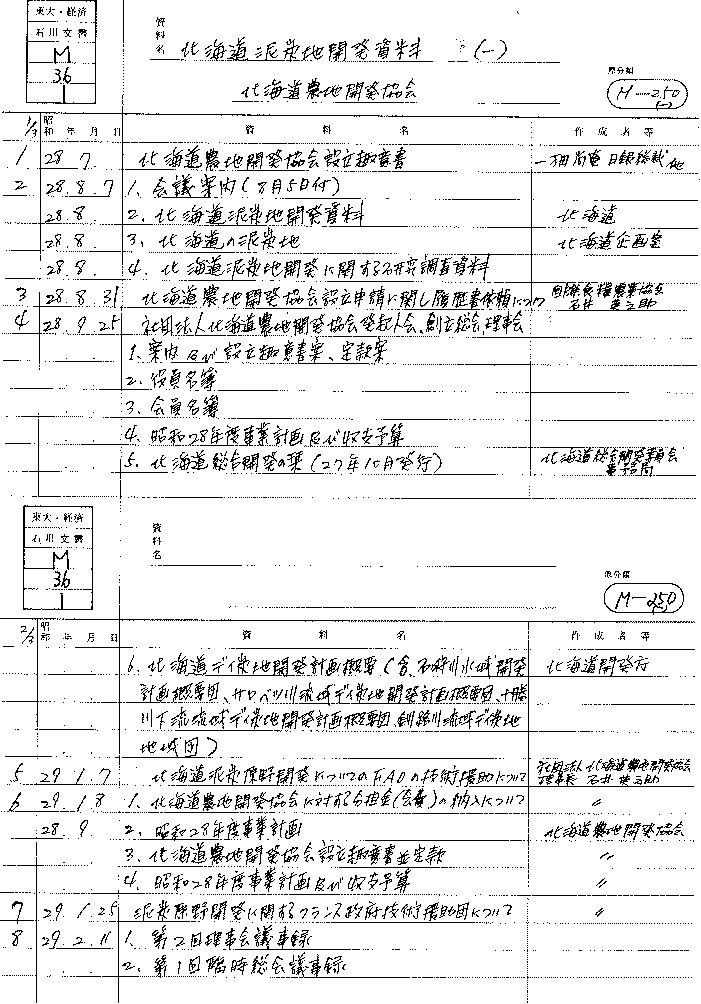 東大・経済
石川文書
M
36
1
資料名 北海道泥炭地開発資料 (一)
北海道農地開発協会
原分類
M-250
(一)
1/3 昭和 年 月 日 資 料 名 作成者等
1 28 7. 北海道農地開発協会設立趣意書 一万田尚登 日銀総裁 他
2 28. 8. 7 1. 会議案内(8月5日付)
28.8. 2. 北海道泥炭地開発資料 北海道
28.8. 3. 北海道の泥炭地 北海道企画室
28.8. 4. 北海道泥炭地開発に関する研究調査資料
3 28 8 31 北海道農地開発協会設立申請に関し履歴書依頼について 石井英之助
4 28. 9. 25 社団法人北海道農地開発協会発起人会、創立総会、理事会
1. 案内及び設立趣意書案、定款案
2. 役員名簿
3. 会員名簿
4. 昭和28年度事業計画及び収支予算
5. 北海道総合開発の栞(27年10月発行) 北海道総合開発委員会
事務局
東大・経済
石川文書
M
36
1
資料名
原分類
M-250
2/3 昭和 年 月 日 資 料 名 作成者等
6. 北海道デイ炭地開発計画概要(含、石狩川水域開発 北海道開発庁
計画概要図、サロベツ川流域デイ炭地開発計画概要図、十勝
川下流流域デイ炭地開発計画概要図、釧路川流域デイ炭地
地域図)
5 29. 1. 7 北海道泥炭原野開発についてのFAOの技術援助について 社団法人 北海道農地開発協会
理事長 石井英之助
6 29. 1. 8 1. 北海道農地開発協会に対する分担金(会費)の納入について 〃
28. 9. 2. 昭和28年度事業計画 北海道農地開発協会
3. 北海道農地開発協会設立趣意書並定款 〃
4. 昭和28年度事業計画及び収支予算 〃
7 29. 1. 25 泥炭原野開発に関するフランス政府技術援助団について 〃
8 29. 2. 11 1. 第2回理事会議事録
2. 第1回臨時総会議事録